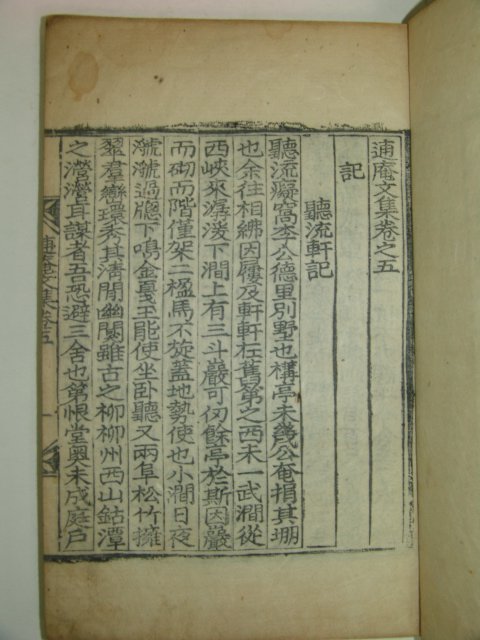 逋庵文集卷之五
記
聽流軒記
聽流癡窩李公德里別墅也構亭未幾公奄捐其
也余往相紼因屨及軒軒在舊第之西未一武澗從
西峽來潺湲下澗上有三斗巖可仞餘亭於斯因巖
而砌而階僅架二楹馬不旋蓋地勢使也小澗日夜
㶁㶁過牕下鳴金戞玉能使坐臥聽又兩阜松竹擁
翠羣巒環秀其淸閒幽闃雖古之柳柳州西山鈷潭
之瀅瀅耳謀者吾恐避三舍也第恨堂奧未成庭戶
文集卷五